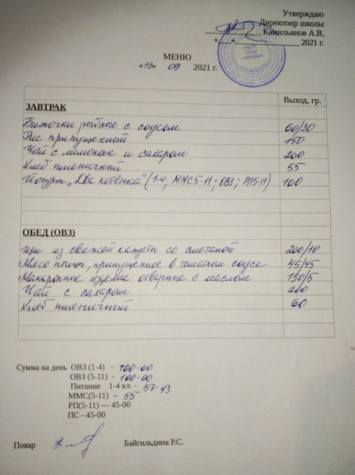 Утверждаю
Директоир школы
Камильянов А.В,
2021 г.
МЕНЮ
«13» 09 2021 г.
Выход, гр.
ЗАВТРАК
Биточки рыбные с соусом 60/30
Рис припущенной 150
Чай с лимоном и сахаром 200
Хлеб пшеничный 55
Йогурт „Два котёнка" (1-4, ММС5-11; ОВЗ; РП5-11) 100
ОБЕД (ОВЗ)
Щи из свежей капусты со сметаной 200/10
Мясо птицы, припущенное в томатном соусе 45/45
Макаронные изделия отварные с маслом 150/5
Чай с сахаром 200
Хлеб пшеничный 60
Сумма на день ОВЗ (1-4) - 100-00
ОВЗ (5-11) - 100-00
Питание 1-4 кл. - 57-43
ММС(5-11) - 55
РП(5-11) — 45-00
ПС - 45-00
Повар Байгильдина Р.С.